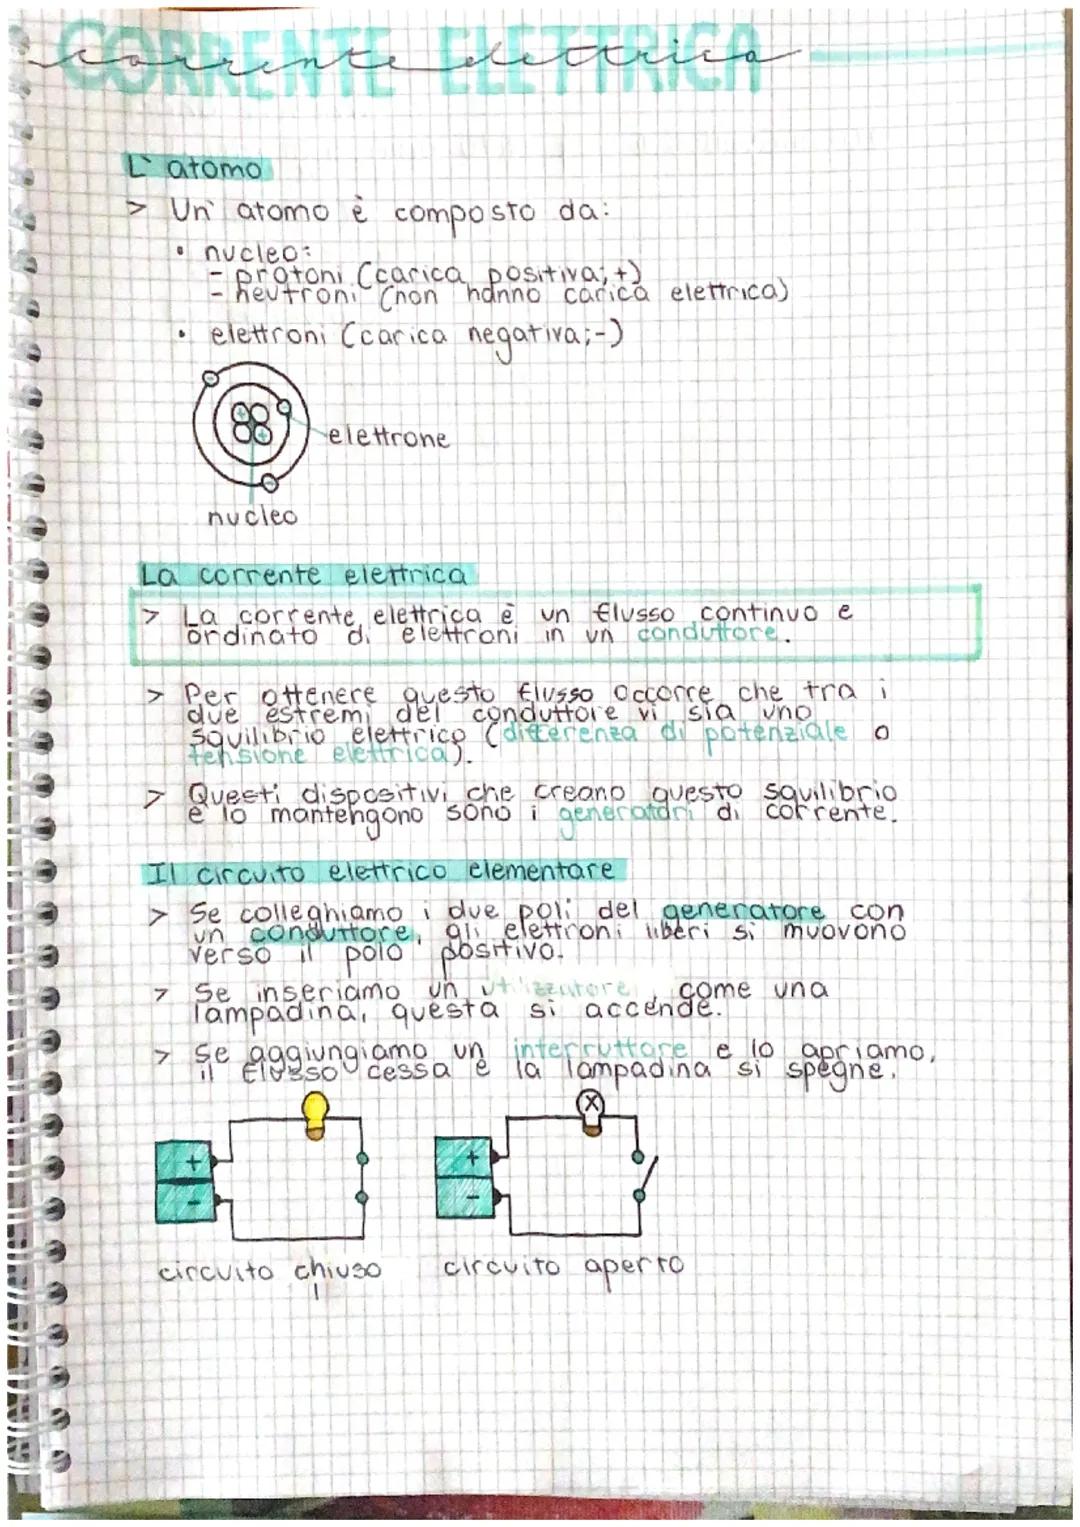 CORRENTE ELETTRICA
corrente elettrica
L' atomo
> Un' atomo è composto da:
• nucleo:
- protoni (carica positiva; +)
- neutroni (non hanno carica elettrica)
• elettroni (carica negativa; -)
elettrone
nucleo
La corrente elettrica
> La corrente elettrica è un flusso continuo e
ordinato di elettroni in un conduttore.
> Per ottenere questo flusso occorre che tra i
due estremi del conduttore vi sia uno
squilibrio elettrico (differenza di potenziale o
tensione elettrica).
> Questi dispositivi che creano questo squilibrio
e lo mantengono sono i generatori di corrente.
Il circuito elettrico elementare
> Se colleghiamo i due poli del generatore con
un conduttore, gli elettroni liberi si muovono
verso il polo positivo.
> Se inseriamo un utilizzatore, come una
lampadina, questa si accende.
> Se aggiungiamo un interruttore e lo apriamo,
il flusso cessa e la lampadina si spegne.
+ + X
- -
circuito chiuso circuito aperto